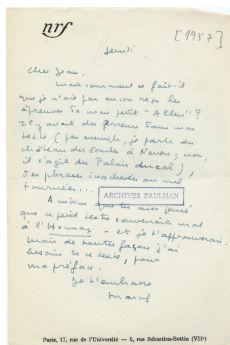 nrf
[1957]
Jeudi
Cher Jean,
Mais comment se fait-il
que je n'ai pas encore reçu les
épreuves de mon petit "Allen" ?
Il y avait des erreurs dans mon
texte (par exemple, je parle du
château des Gondi à Nevers, non,
il s'agit du Palais ducal),
des phrases inachevées ou mal
tournées...
ARCHIVES PAULHAN
A moins que tu aies pensé
que ce petit texte convenait mal
à l'Hommage - et je t'approuverais.
Mais de toutes façons j'ai
besoin de ce texte, pour
ma préface.
Je t'embrasse
Marcel
Paris, 17, rue de l'Université — 5, rue Sébastien-Bottin (VIIe)